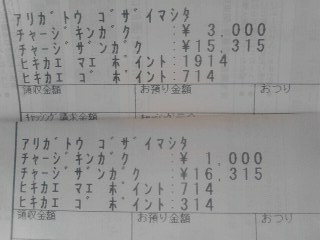 アリガトウ ゴザイマシタ
チャージキンガク :¥ 3,000
チャージザンガク :¥ 15,315
ヒキカエ マエ ポイント:1914
ヒキカエ ゴ ポイント:714
領収金額 お預り金額 おつり
アリガトウ ゴザイマシタ
チャージキンガク :¥ 1,000
チャージザンガク :¥ 16,315
ヒキカエ マエ ポイント:714
ヒキカエ ゴ ポイント:314
領収金額 お預り金額 おつり